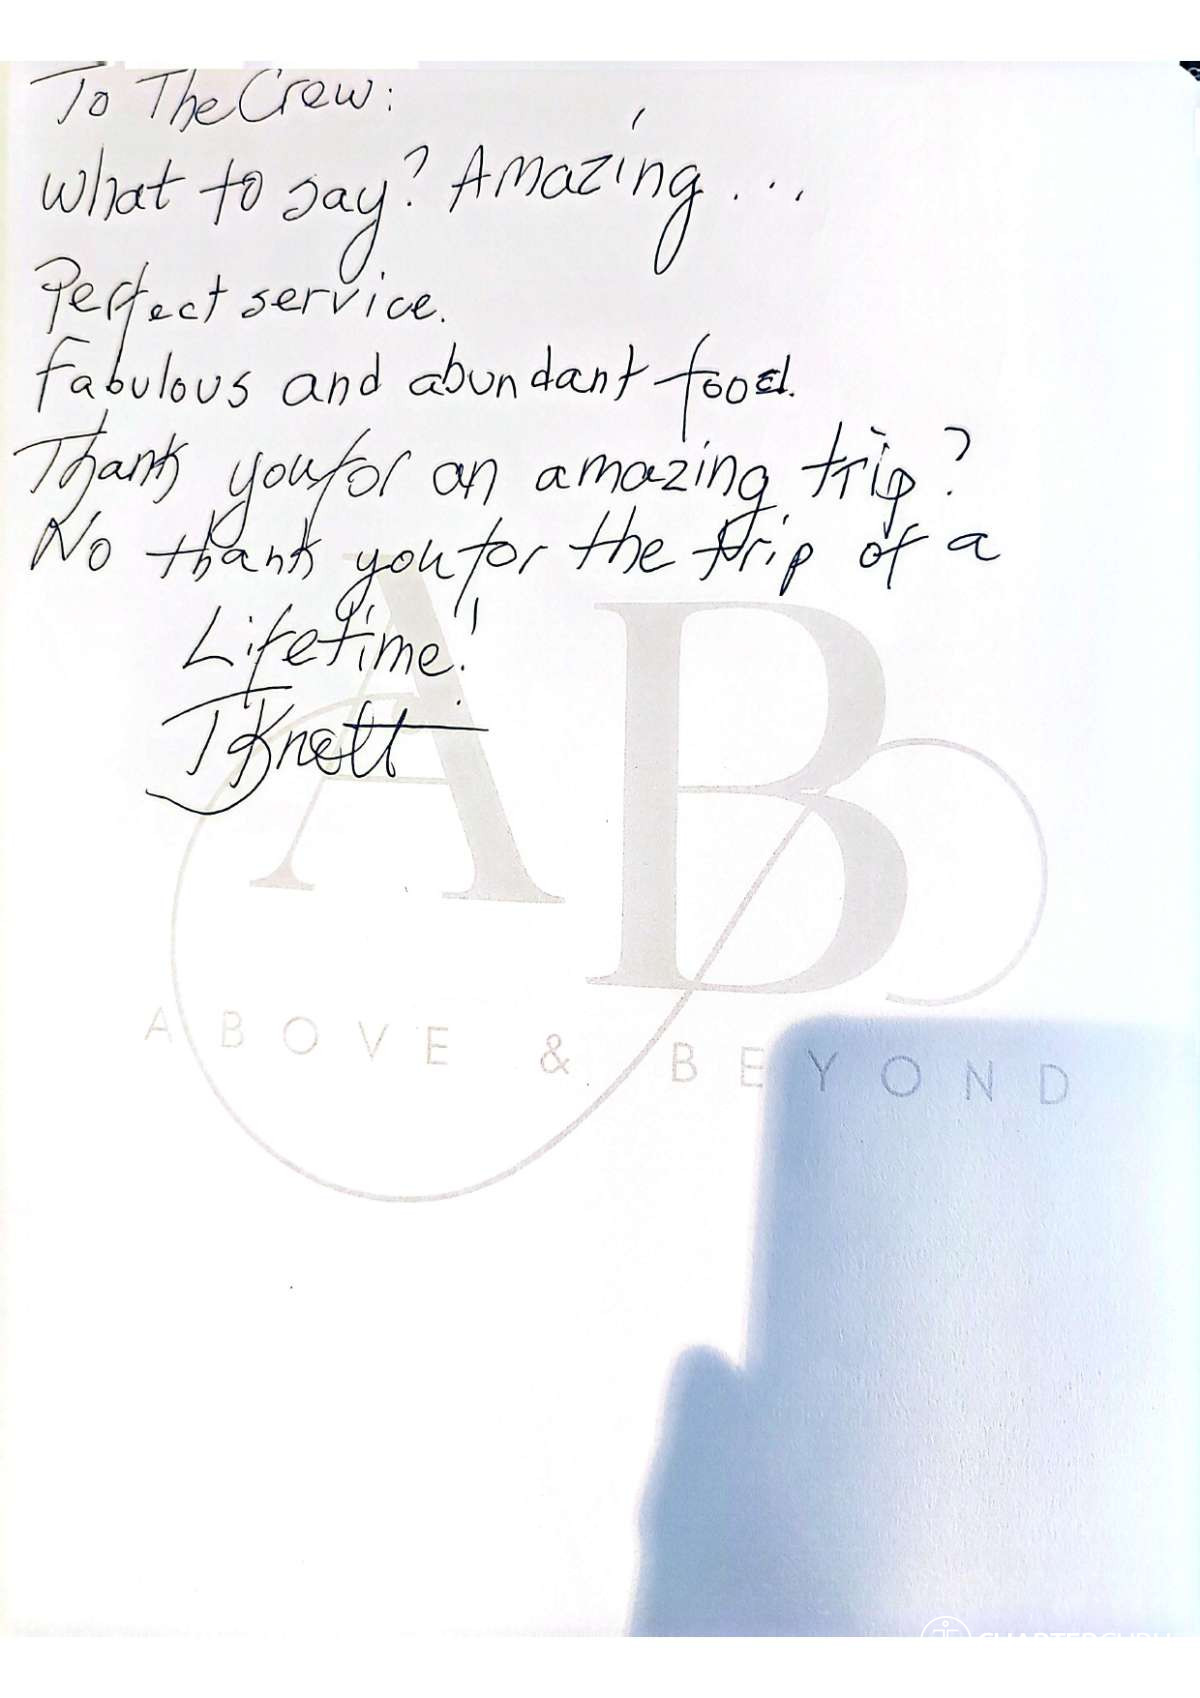 To The Crew:
What to say? Amazing...
Perfect service.
Fabulous and abundant food.
Thank you for an amazing trip?
No thank you for the trip of a
Lifetime!
AB
ABOVE & BEYOND